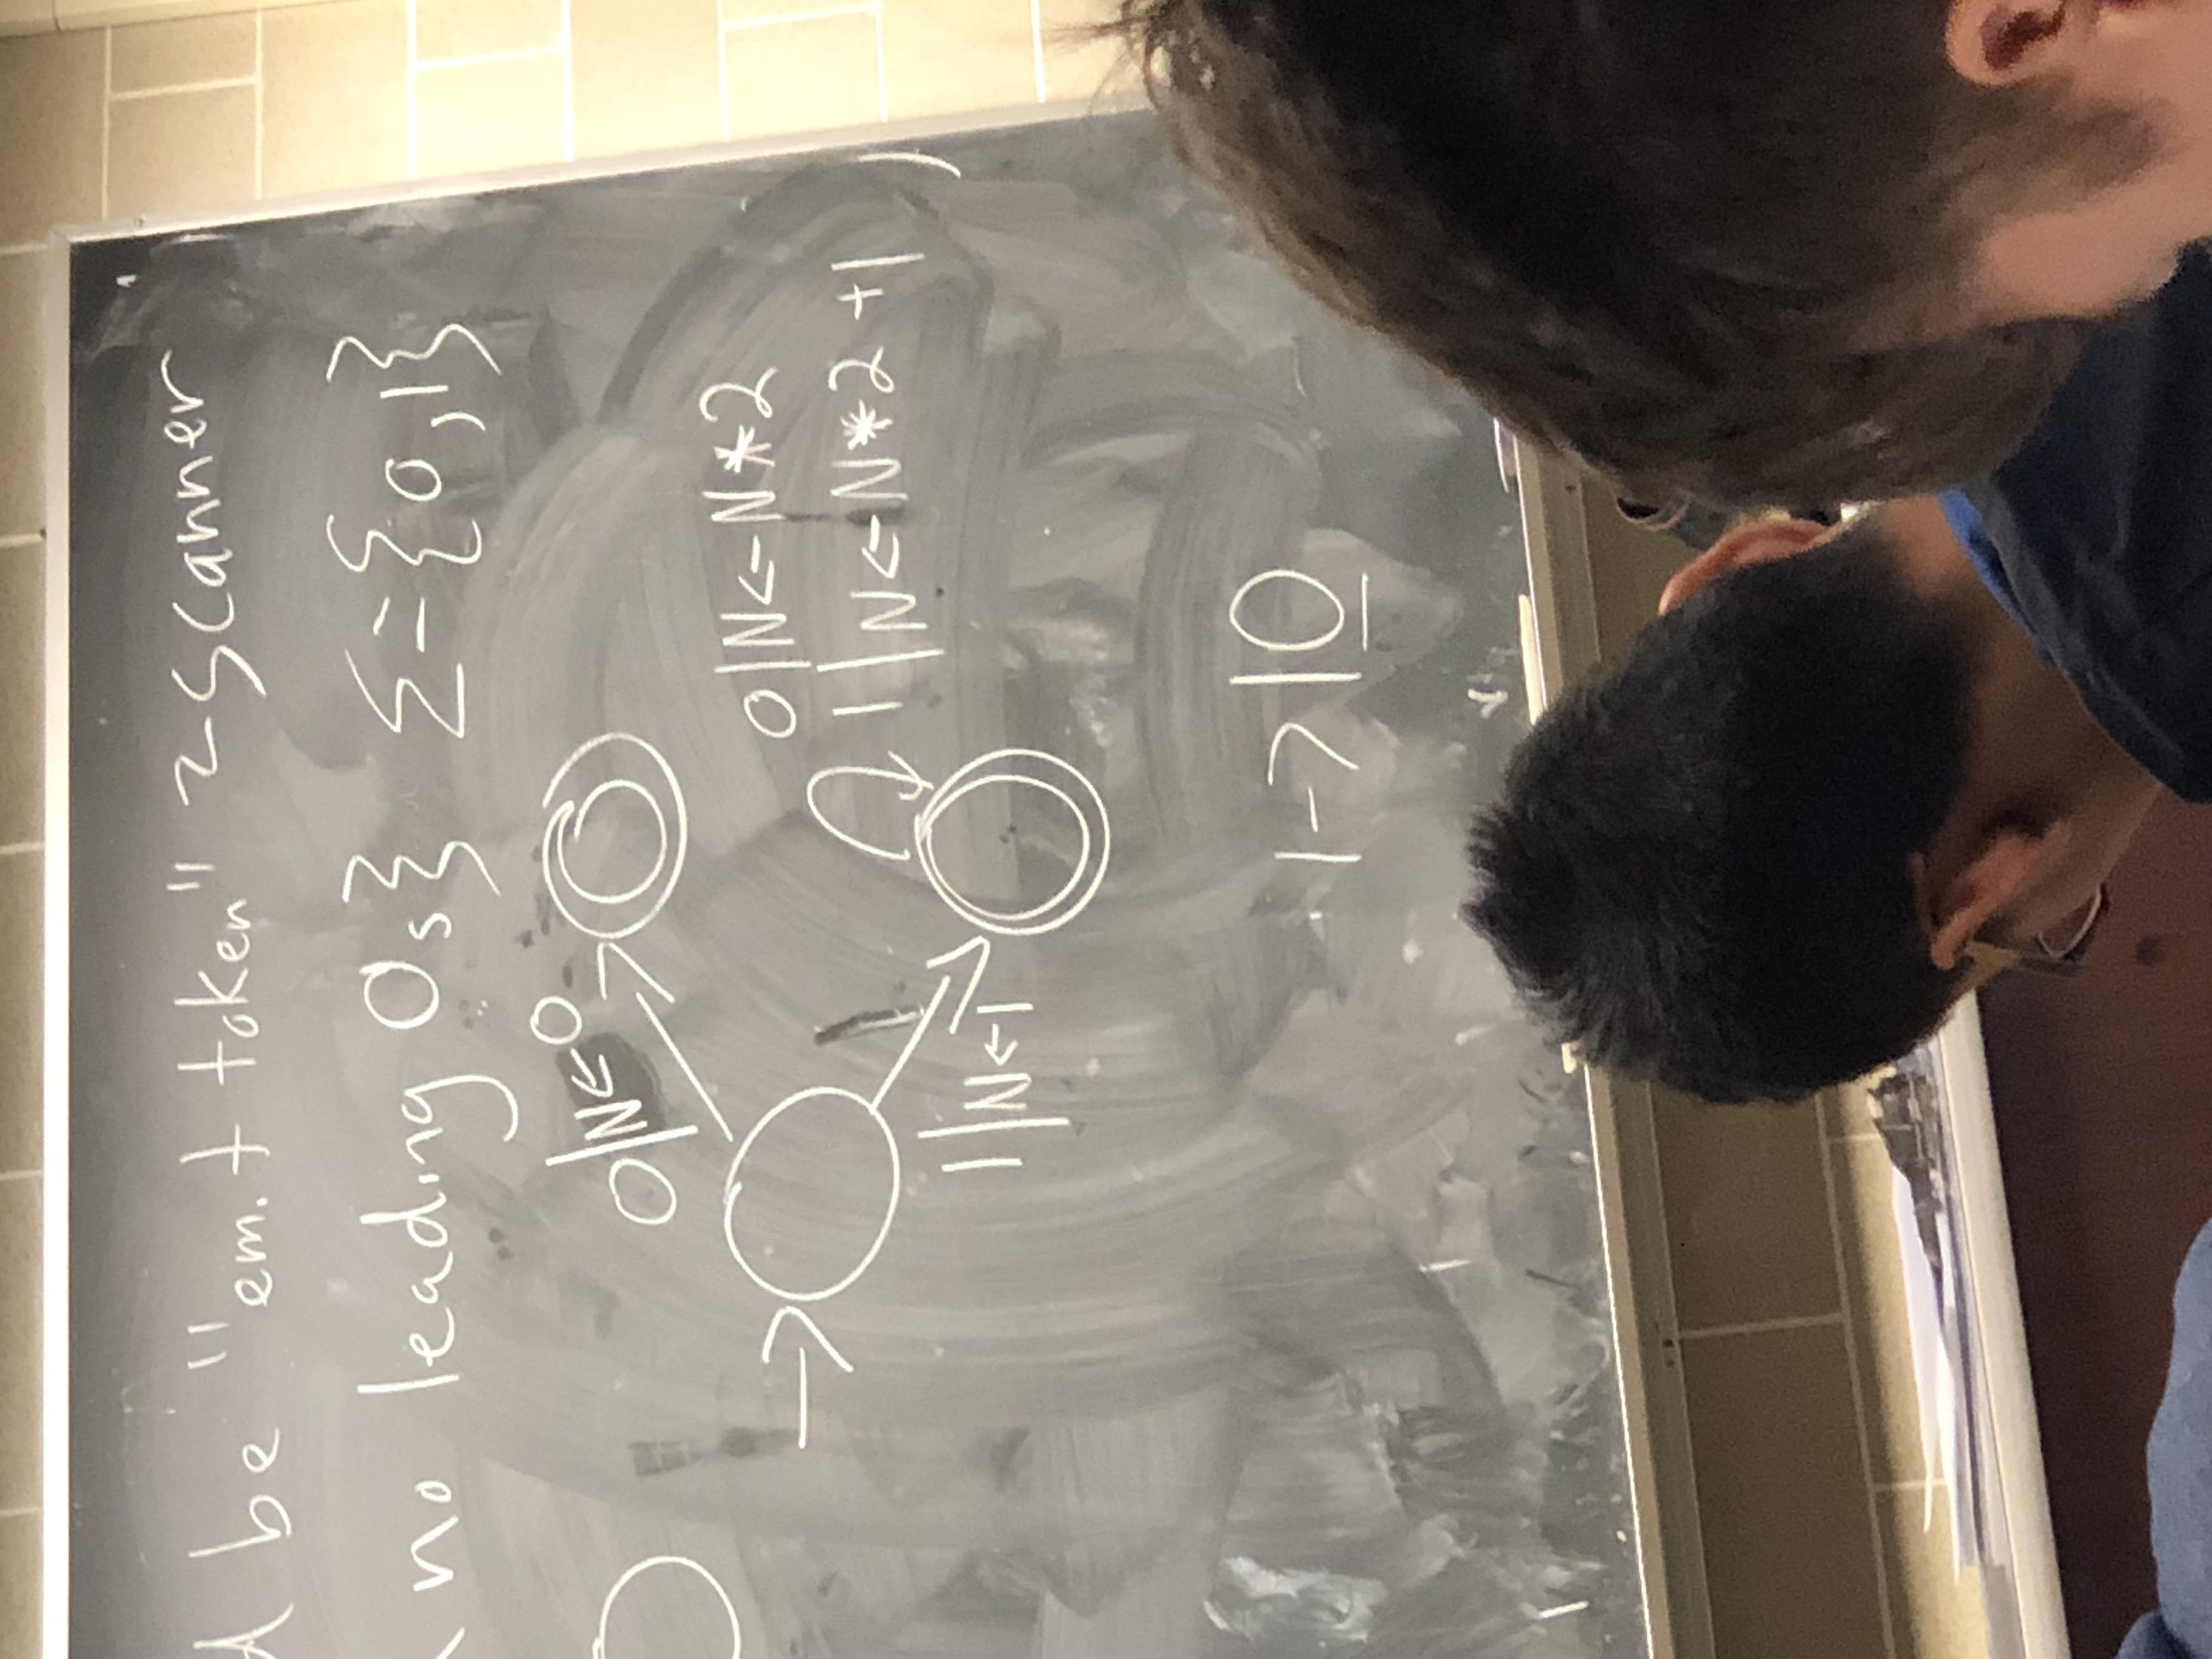 be "emit token" ~ scanner
no leading 0s} Σ={0,1}
0|N←0
0|N←N*2
1|N←N*2+1
1|N←1
1->10